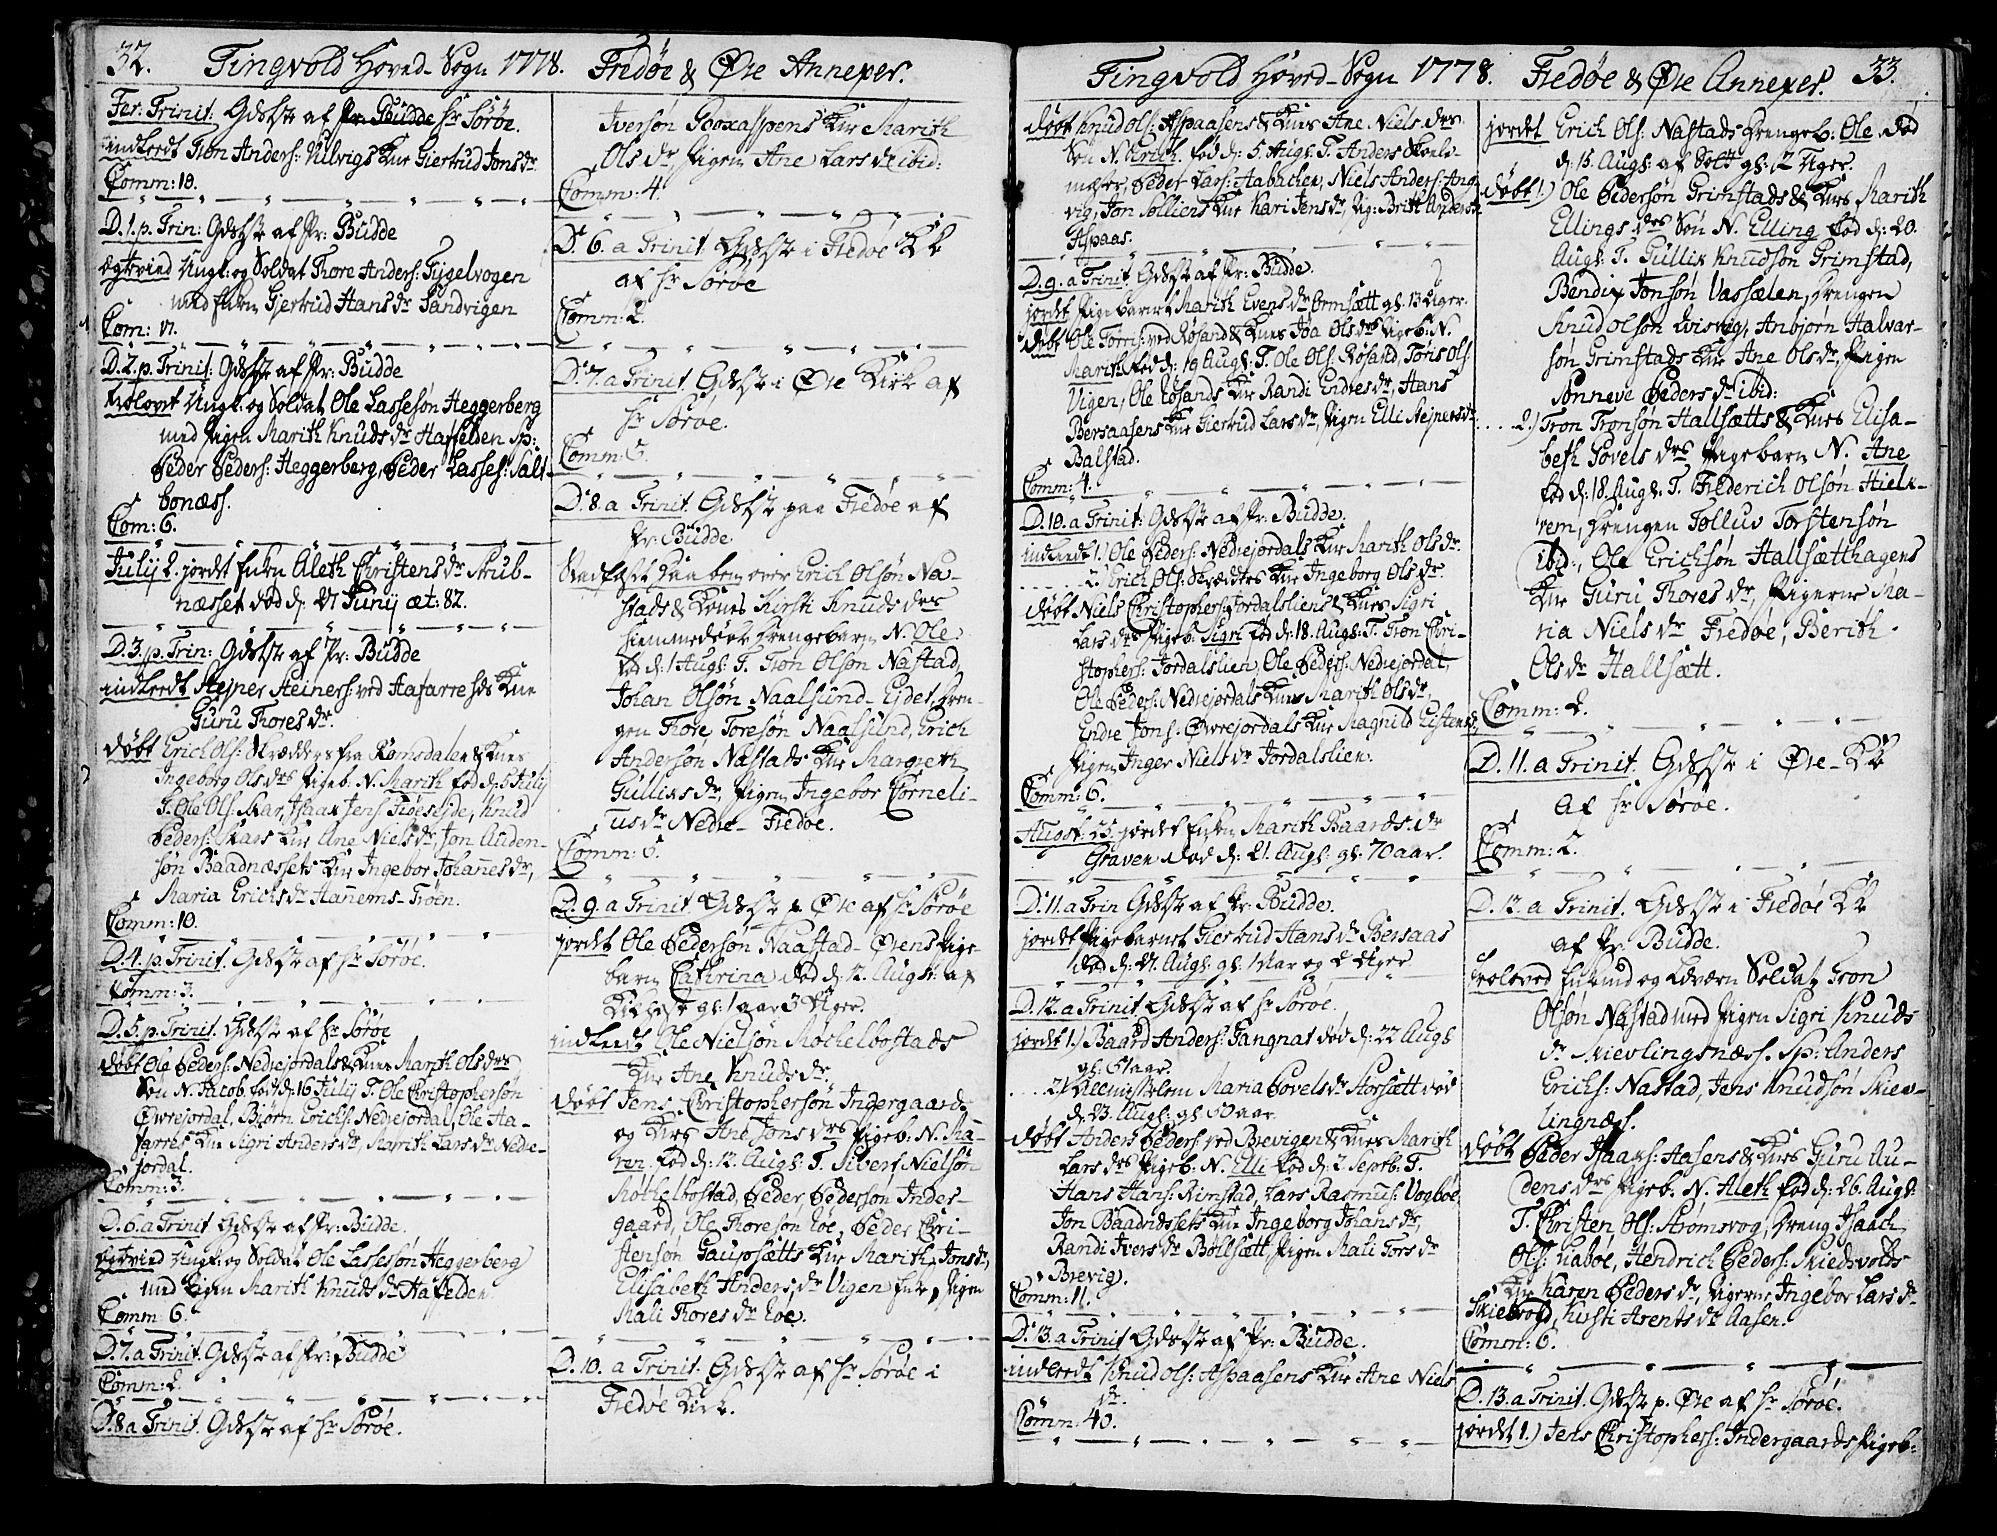 32. Tingvold Hoved-Sogn 1778. Fredøe & Øre Annexer.
Fer: Trinit: Gdstst af Hr. Sørøe.
indledt Tron Anders: Ulvigs Kne Giertrud Jons dr.
Comm: 10.
D. 1. p. Trin: Gdstst af Pr: Budde
ægtevied Ungk: og Soldat Thore Anders: Fygelvogen
med Enken Gjertrud Hans dr Sandvigen
Com: 17.
D. 2. p. Trinit: Gdstst af Pr: Budde
trolovet Ungk: og Soldat Ole Lassesøn Heggerberg
med Pigen Marith Knuds dr Hafelden Sp:
Peder Peders: Heggerberg, Peder Lasses: Salt-
bonæss.
Com: 6.
Julij 2. jordet Enken Aleth Christens dr Strub-
næsset død d: 27 Junij æt: 82.
D. 3. p. Trin: Gdstst af Pr: Budde
indledt Stejner Steiners: ved Hafarre Kne
Guru Thores dr.
døbt Erich Ols: Skrædders fra Romsdalen & Knes
Ingeborg Ols drs Pigeb. N. Marith fød d: 5 Julij
T. Ole Ols: Skar, Isaak Jens: Knud
Peders: Skars Kne Ane Niels dr, Jon Auden-
søn Baadnæssets Kne Ingebor Johanes dr,
Maria Erichs dr Hanems-Trøen.
Comm: 10.
D. 4. p. Trinit. Gdstst af Hr Sørøe.
Comm: 3.
D. 5. p. Trinit. Gdstst af Hr Sørøe
døbt Ole Peders: Nedrejordals & Knes Marith Ols drs
Søn N. Jacob. født d: 16 Julij T. Ole Christophersøn
Øvrejordal, Biørn Erichs: Nedrejordal, Ole Ha-
farres Kne Sigri Anders dr, Marith Lars dr Nedre-
jordal.
Comm: 3.
D. 6. a Trinit Gdstst af Pr: Budde.
ægtevied Ungk: og Soldat Ole Lassesøn Heggerberg
med Pigen Marith Knuds dr Hafelden
Comm 6.
D. 7. a Trinit. Gdstst af Pr: Budde
Comm: 2.
D. 8 a Trinit. Gdstst af Hr Sørøe.
Iversøn Kne Marith
Ols dr Pigen Ane Lars dr ibid:
Comm: 4.
D. 6. a Trinit. Gdstst i Fredøe Kk
af Hr Sørøe
Comm: 2.
D. 7. a Trinit. Gdstst i Øre Kirke af
Hr Sørøe.
Comm: 5.
D. 8. a Trinit. Gdstst paa Fredøe af
Pr: Budde
Stadfæst Daaben over Erich Olsøn Na-
stads & Kones Kirsti Knuds drs
hiemmedøbt Drengebarn N. Ole
fød d: 1 Aug: T. Tron Olsøn Nastad,
Johan Olsøn Naalsund-Eidet, Dren-
gen Thore Toresøn Naalsund, Erich
Andersøn Nastads Kne Margreth
Gulliks dr, Pigen Ingebor Corneli-
us dr Nedre-Fredøe.
Comm: 5.
D. 9. a Trinit Gdstst p. Øre af Hr Sørøe
jordet Ole Pedersøn Naastad-Ørens Pige-
barn Cathrina død d: 12. Aug: af
gl: 1 aar 3 Uger.
indledt Ole Nielsøn Møchelbostads
Kne Ane Knuds dr.
døbt Jens Christophersøn Indergaards
og Knes Ane Jons drs Pigeb. N. Ma-
ren fød d: 12. Aug: T. Sivert Nielsøn
Møchelbostad, Peder Pedersøn Inder-
gaard, Ole Thoresøn Roe, Peder Chri-
stensøn Gaupsætts Kne Marith Jons dr,
Elisabeth Anders dr Vigen Enke, Pigen
Mali Thores dr Roe.
D. 10. a Trinit. Gdstst af Hr Sørøe i
Fredøe Kirk.
Tingvold Hoved-Sogn 1778. Fredøe & Øre Annexer. 33.
døbt Knud Ols: Aspaasens & Knes Ane Niels drs
Søn N. Erich. fød d: 5. Aug: T. Anders Skole-
mæster, Peder Lars: Aabachen, Niels Anders: Ang-
vig, Jon Solliens Kne Kari Jens dr, Pig: Britt Anders dr
Aspaas.
D. 9. a Trinit. Gdstst af Pr: Budde.
jordet Pigebarnet Marith Evens dr Ormsætt gl: 13 Uger.
døbt Ole Torris: ved Røsand & Knes Ols drs Pigeb. N.
Marith fød d: 19 Aug: T. Ole Ols: Røsand, Tøris Ols:
Vigen, Ole Røsands Kne Randi Endres dr, Hans
Bersaasens Kne Giertrud Lars dr, Pigen Elli Stejners dr
Balstad.
Comm: 4.
D. 10. a Trinit: Gdstst af Pr: Budde.
indledt 1.) Ole Peders: Nedrejordals Kne Marith Ols dr.
2. Erich Ols: Skrædders Kne Ingeborg Ols dr.
døbt Niels Christophers: Jordalsliens & Knes Sigri
Lars drs Pigeb. Sigri fød d: 18. Aug: T. Tron Chri-
stophers: Jordalslien, Ole Peders: Nedrejordal,
Ole Peders: Nedrejordals Kne Marith Ols dr,
Endre Jons: Øvrejordals Kne Magnild Gistens dr,
Pigen Inger Niels dr Jordalslien.
Comm: 6.
August: 25. jordet Enken Marith Baards dr
Graven død d: 21. Aug: gl: 70 aar.
D. 11. a Trin Gdstst af Pr: Budde.
jordet Pigebarnet Giertrud Hans dr Bersaas
død d: 27. Aug: gl: 1 Aar og 2 Uger
D. 12. a Trinit Gdstst af Hr Sørøe.
jordet 1.) Baard Anders: Gangnat død d: 22 Aug:
gl: 61 aar.
2) Almisselem Maria Povels dr Storsætt død
d: 23. Aug: gl: 50 aar.
døbt Anders Peders: ved Brevigen & Knes Marith
Lars drs Pigeb. N. Elli fød d: 2. Septb: T.
Hans Hans: Rimstad, Lars Rasmus: Vogboe
Jon Baadnæssets Kne Ingeborg Johans dr,
Randi Ivers dr Bøllsætt, Pigen Mali Tors dr
Brevig.
Comm: 11.
D. 13. a Trinit Gdstst af Pr: Budde.
indledt Knud Ols: Aspaasens Kne Ane Niels
dr.
Comm: 40.
jordet Erich Ols: Nastads Drengeb: Ole død
d: 15. Aug: af gl: 2 Uger.
døbt 1.) Ole Pedersøn Grimstads & Knes Marith
Ellings drs Søn N. Elling fød d: 20.
Aug: T. Gullik Knudsøn Grimstad,
Bendix Jonsøn Vassælen, Drengen
Knud Olsøn Qvisvig, Anbjørn Halvar-
søn Grimstads Kne Ane Ols dr, Pigen
Sønneve Peders dr ibid:
2.) Tron Tronsøn Hallsætts & Knes Elisa-
beth Povels drs Pigebarn N. Ane
fød d: 18. Aug: T. Frederich Olsøn Hielk-
rem, Drengen Tølluv Torstensøn
ibid:, Ole Erichsøn Hallsætthagens
Kne Guru Thores dr, Pigerne Ma-
ria Niels dr Fredøe, Berith
Ols dr Hallsætt.
Comm: 2.
D. 11. a Trinit. Gdstst i Øre-Kk
af Hr Sørøe.
Comm: 2.
D. 12. a Trinit. Gdstst i Fredøe Kk
af Pr: Budde.
troloved Enkemand og Soldat Tron
Olsøn Nastad med Pigen Sigri Knuds
dr Skievlingsnæss. Sp: Anders
Erichs: Nastad, Jens Knudsøn Skiev-
lingnæs.
døbt Peder Isaaks: Aasens & Knes Guru Au-
dens drs Pigeb. N. Aleth fød d: 26. Aug:
T. Christen Ols: Strømsvog, Dreng Isaach
Ols: Raboe, Hendrich Peders: Skiedsvolds
Kne Karen Peders dr, Pigerne Ingebor Lars dr
Skiedsvold, Kirsti Arents dr Aasen.
Comm: 6.
D. 13. a Trinit. Gdstst p. Øre af Hr Sørøe.
jordet 1.) Jens Christophers: Indergaards Pigeb: